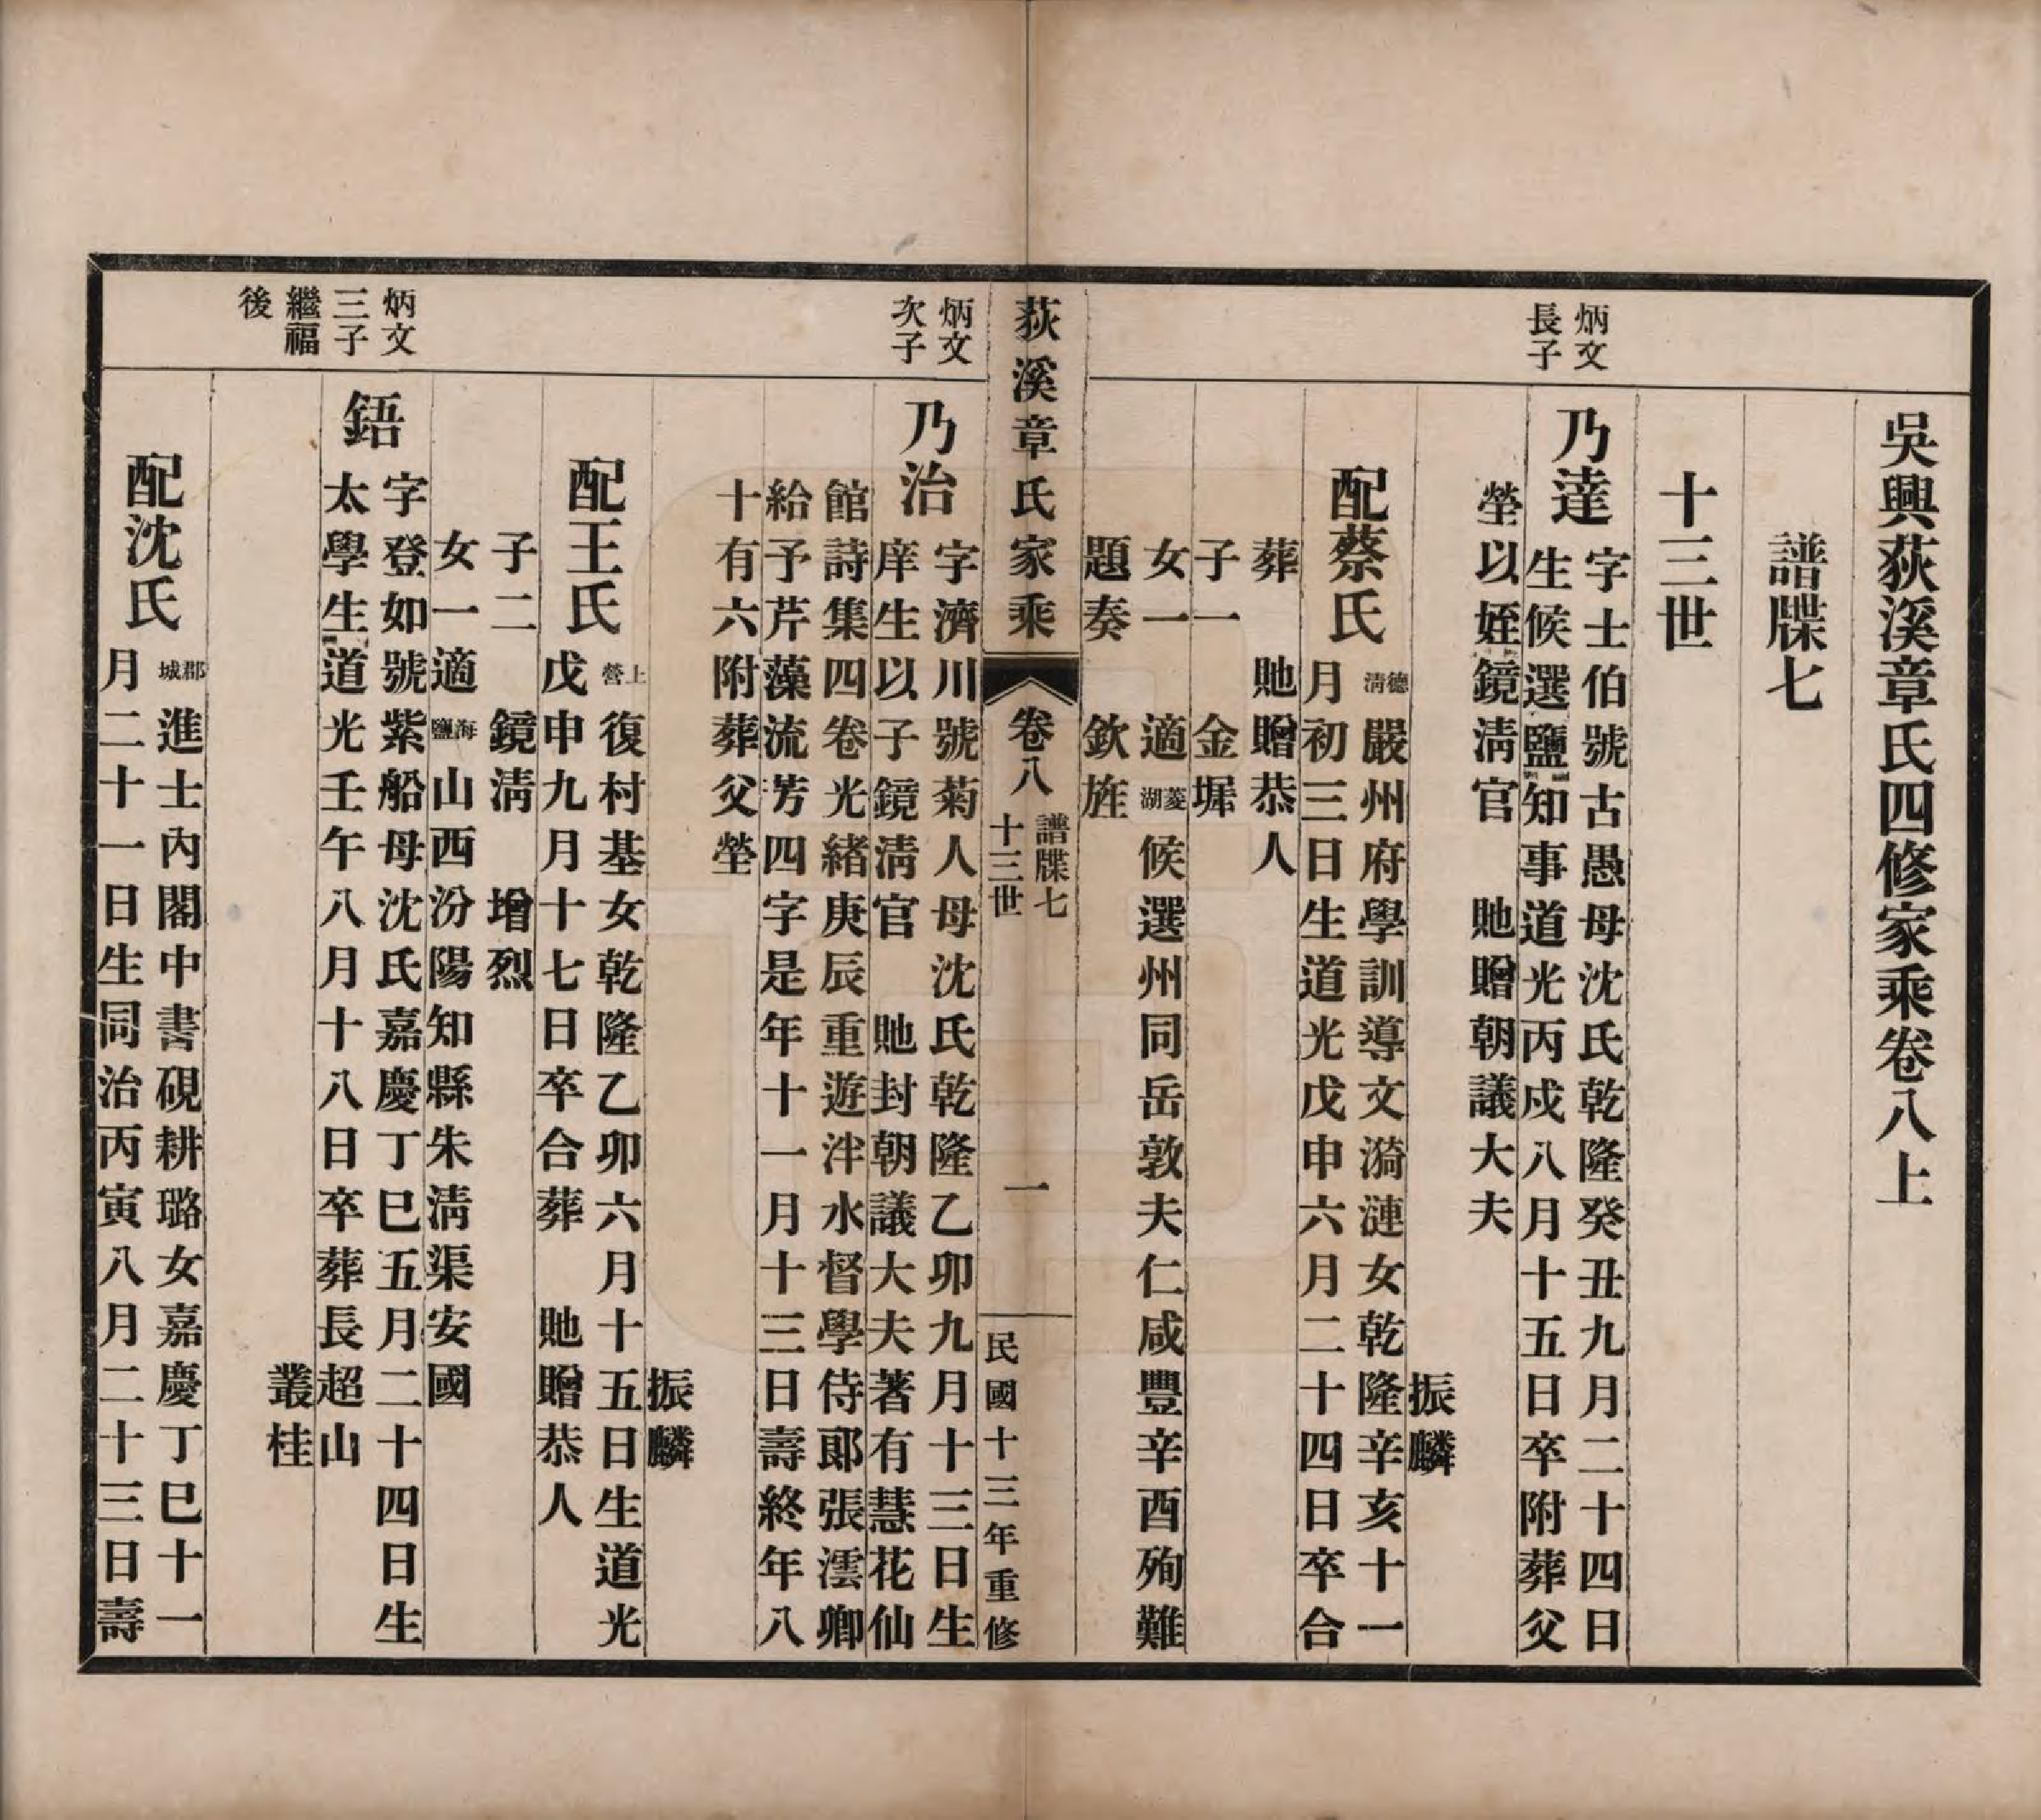 吳興荻溪章氏四修家乘卷八上
譜牒七
十三世
炳文
長子
乃達
字士伯號古愚母沈氏乾隆癸丑九月二十四日
生候選鹽知事道光丙戌八月十五日卒附葬父
塋以姪鏡清官 貤贈朝議大夫
振麟
配蔡氏
德清
嚴州府學訓導文漪漣女乾隆辛亥十一
月初三日生道光戊申六月二十四日卒合
葬 貤贈恭人
子一 金墀
女一 適菱湖候選州同岳敦夫仁咸豐辛酉殉難
題奏 欽旌
荻溪章氏家乘
卷八
譜牒七
十三世
一
民國十三年重修
炳文
次子
乃治
字濟川號菊人母沈氏乾隆乙卯九月十三日生
庠生以子鏡清官 貤封朝議大夫著有慧花仙
館詩集四卷光緒庚辰重遊泮水督學侍郎張澐卿
給予芹藻流芳四字是年十一月十三日壽終年八
十有六附葬父塋
振麟
配王氏
上營
復村基女乾隆乙卯六月十五日生道光
戊申九月十七日卒合葬 貤贈恭人
子二 鏡清 增烈
女一適海鹽山西汾陽知縣朱清渠安國
炳文
三子
繼福
後
鋙
字登如號紫船母沈氏嘉慶丁巳五月二十四日生
太學生道光壬午八月十八日卒葬長超山
叢桂
配沈氏
郡城
進士內閣中書硯耕璐女嘉慶丁巳十一
月二十一日生同治丙寅八月二十三日壽